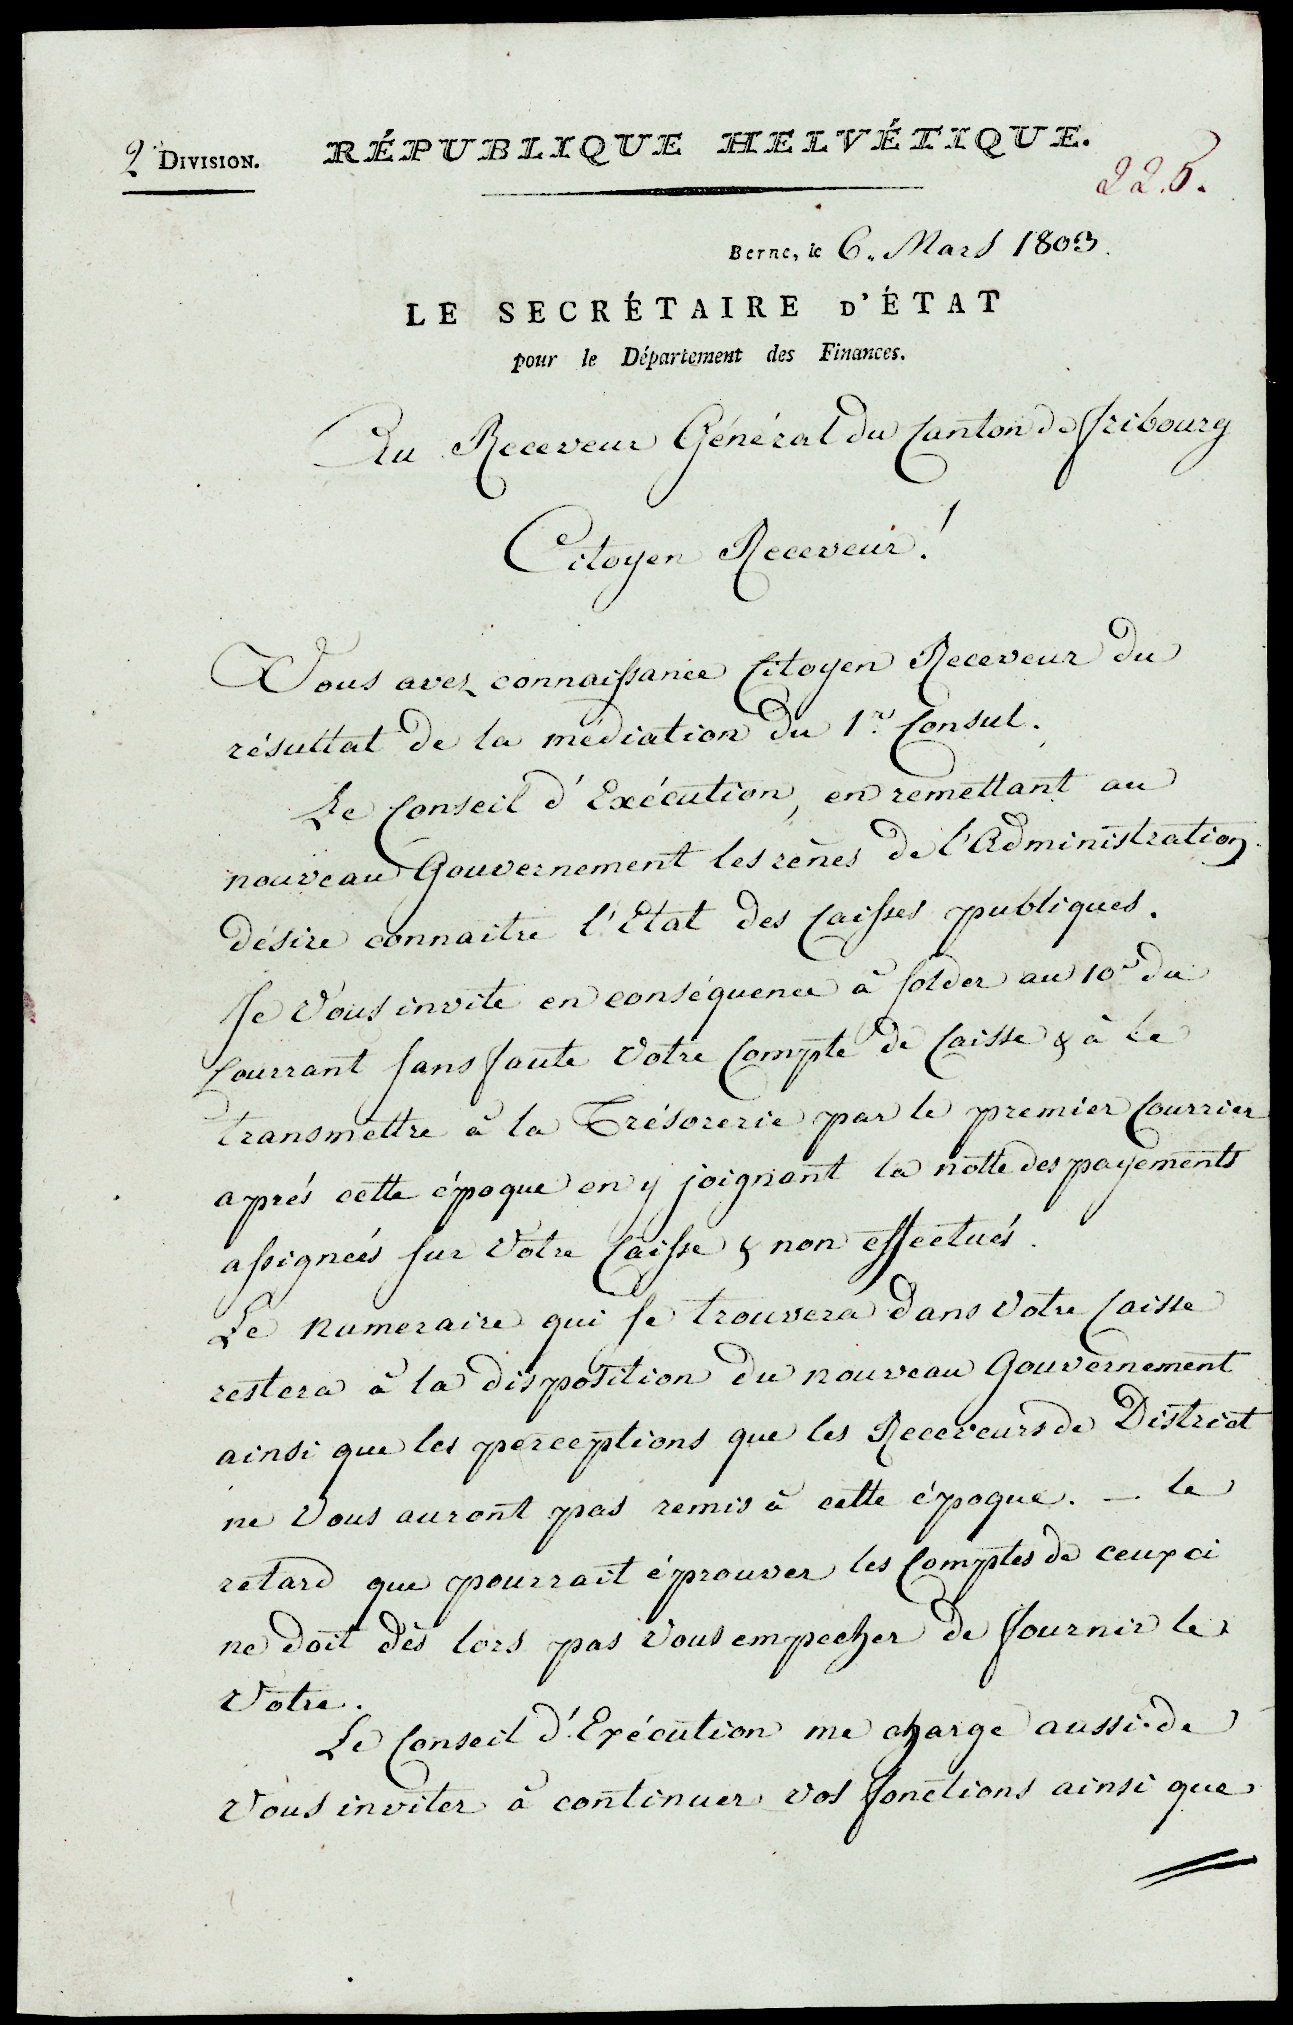 2.e DIVISION.
RÉPUBLIQUE HELVÉTIQUE.
225.
Berne, le 6. Mars 1803.
LE SECRÉTAIRE D'ÉTAT
pour le Département des Finances.
Au Receveur Général du Canton de Fribourg
Citoyen Receveur!
Vous avez connaissance Citoyen Receveur du
résultat de la médiation du 1.er Consul.
Le Conseil d'Exécution, en remettant au
nouveau Gouvernement les rênes de l'Administration
désire connaitre l'Etat des Caisses publiques.
Je Vous invite en conséquence à solder au 10e du
Courrant sans faute Votre Compte de Caisse & à le
transmettre à la Trésorerie par le premier Courrier
aprés cette époque en y joignant la notte des payements
assigneés sur Votre Caisse & non effectués.
Le numeraire qui se trouvera dans Votre Caisse
restera à la disposition du nouveau Gouvernement
ainsi que les perceptions que les Receveurs de District
ne Vous auront pas remis à cette époque. — le
retard que pourrait éprouver les Comptes de ceux ci
ne doit dès lors pas Vous empecher de fournir le
Votre.
Le Conseil d'Exécution me charge aussi de
Vous inviter à continuer vos fonctions ainsi que